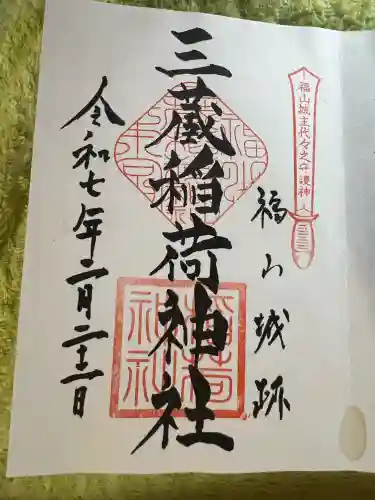 福山城主代々之守護神
福山城跡
三蔵稲荷神社
令和七年二月二十二日